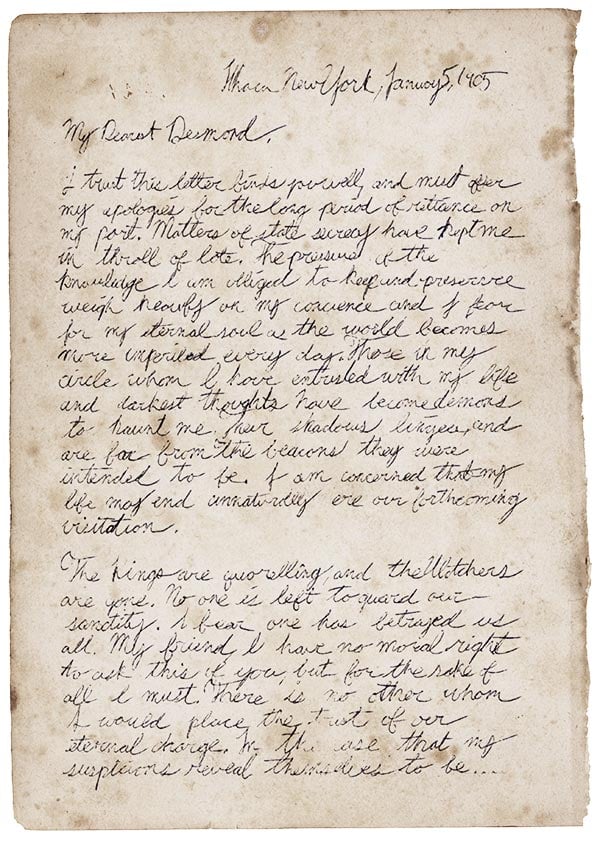 Ithaca New York, January 5, 1905
My Dearest Desmond,
I trust this letter finds you well, and must offer
my apologies for the long period of reticance on
my part. Matters of state secrecy have kept me
in throll of late. The pressure of the
knowledge I am obliged to keep and preserve
weigh heavily on my concience and I fear
for my eternal soul as the world becomes
more imperiled every day. Those in my
circle whom I have entrusted with my life
and darkest thoughts have become demons
to haunt me. Their shadows linger, and
are far from the beacons they were
intended to be. I am concerned that my
life may end unnaturally ere our forthcoming
visitation.
The Kings are quorelling, and the Watchers
are gone. No one is left to guard our
sanctity. I fear one has betrayed us
all. My friend, I have no moral right
to ask this of you, but for the sake of
all I must. There is no other whom
I would place the trust of our
eternal charge. In the case that my
suspicions reveal themselves to be....